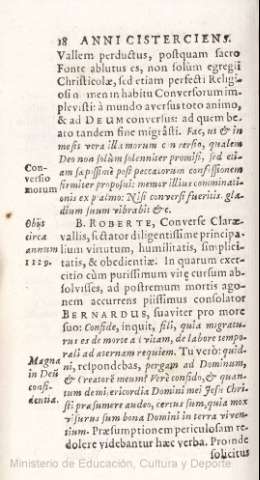 18 ANNI CISTERCIENS.
Vallem perductus, postquam sacro
Fonte ablutus es, non solùm egregii
Christicolæ, sed etiam perfecti Religi-
osi nomen in habitu Conversorum im-
plevisti: à mundo aversus toto animo,
& ad DEUM conversus: ad quem be-
ato tandem fine migrâsti. Fac, ut & in
vera illa morum conversio, qualem
Deo non solùm solenniter promisi, sed eti-
am sæpissimè post peccatorum confessionem
firmiter proposui: memor illius comminati-
onis ex psalmo: Nisi conversi fueritis gla-
dium suum vibrabit &c.
Con-
versio
morum
Obijt
circa
annum
1129.
B. ROBERTE, Converse Claræ-
vallis, sectator diligentissime principa-
lium virtutum, humilitatis, simplici-
tatis, & obedientiæ. In quarum exer-
citio cùm purissimum vitę cursum ab-
solvisses, ad postremum mortis ago-
nem accurrens piissimus consolator
BERNARDUS, suaviter pro more
suo: Confide, inquit, fili, quia migratu-
rus es de morte ad vitam, de labore tempo-
rali ad æternam requiem. Tu verò: quid-
ni, respondebas, pergam ad Dominum,
& Creatorē meum? Verè confido, & quan-
tum de misericordia Domini mei Jesu Chri-
sti præsumere audeo, certus sum, quia mox
visurus sum bona Domini in terra viven-
tium. Præsumptionem periculosam re-
dolere videbantur hæc verba. Proinde
solicitus
Magna
in Deū
confi-
dentia.
Ministerio de Educación, Cultura y Deporte